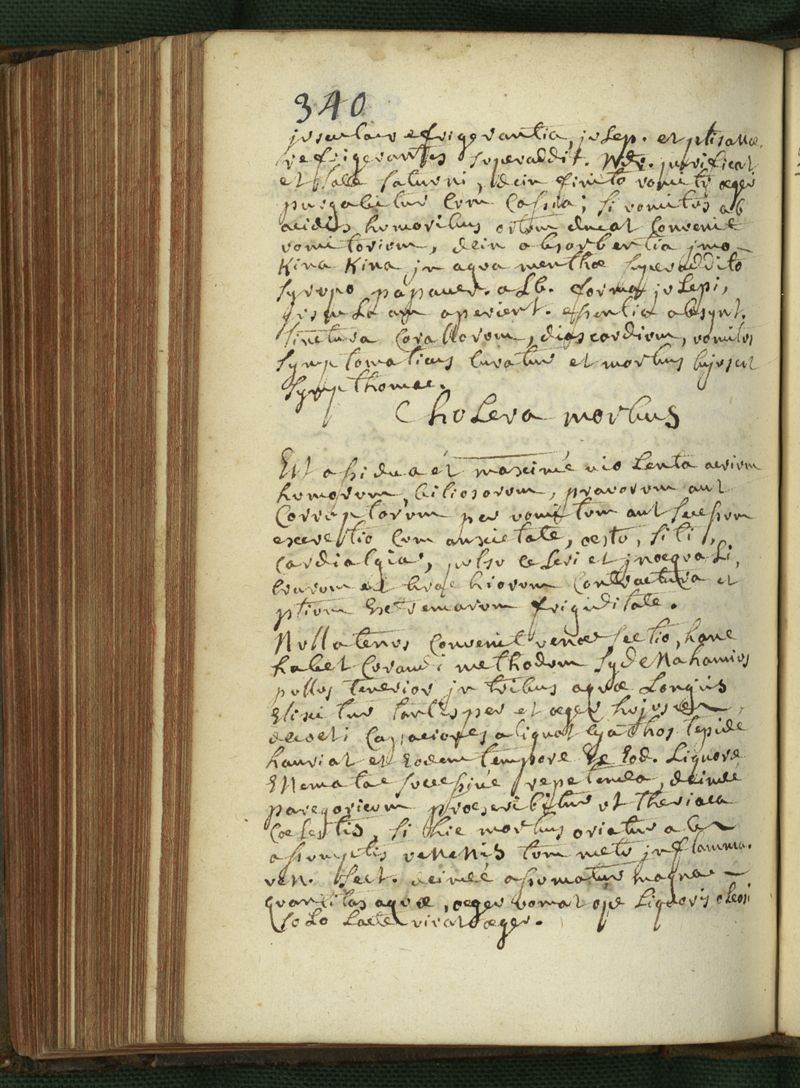 340
refrigerantia, julep. et ptisanae
refrigerantes superaddit. purificat
et sale saturni, dein finito vomitu aeger
purgabitur cum Cassia; si vomitus ab
acidis humoribus ortum ducat Convenit
vomitorium, dein absorbentia jmo
Kina Kina jn aqua menthae superaddito
syrupo papaver. alb. forma julepi,
aperient. essentia absynt.
tinctura Corallorum, diascordium, vomitus
symptomaticus Curatur et morbus hujus est
sympthomae.
Cholera morbus
Est assidua et maximé violenta acrium
humorum, biliosorum, pravorum aut
Corruptorum per vomitum aut secessum
excretio Cum anxietate, aestu, siti,
Cardialgia, pulsu celeri et jnaequali,
crurum et brachiorum Contractura et
partium Extremarum frigiditate.
Nullatenus Convenit venae sectio, hanc
habet Curandi methodum Sydenahamius
pullus tenerior jn tribus aquae Longiis
Elixetur et aeger hujus
decocti Capaciores aliquot Cyathos tepide
hauriat et Eodem tempore Ex Eod. Liquore
Enemata successivé repetenda, deindé
paregoricum praescribitur ut Theriaca
Coelestis, si hic morbus oriatur ab
assumptis venenis tum metu jnflamma.
ven. sect. deindé assumatur magna
quantitas aquae, aeger vomat ope Liquoris oleosi
solo Lacte vivat aeger.